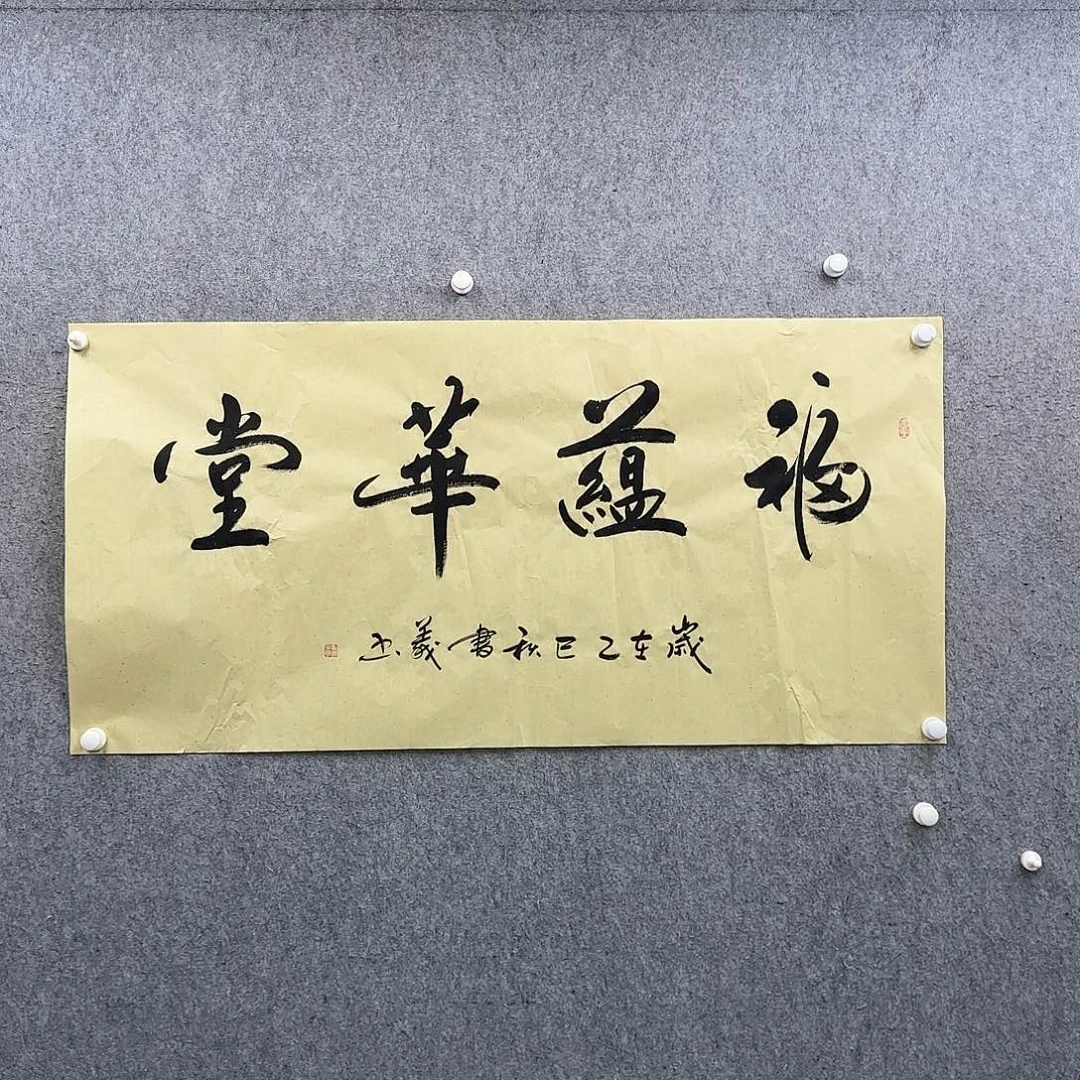 福蘊華堂
歲在乙巳秋書義